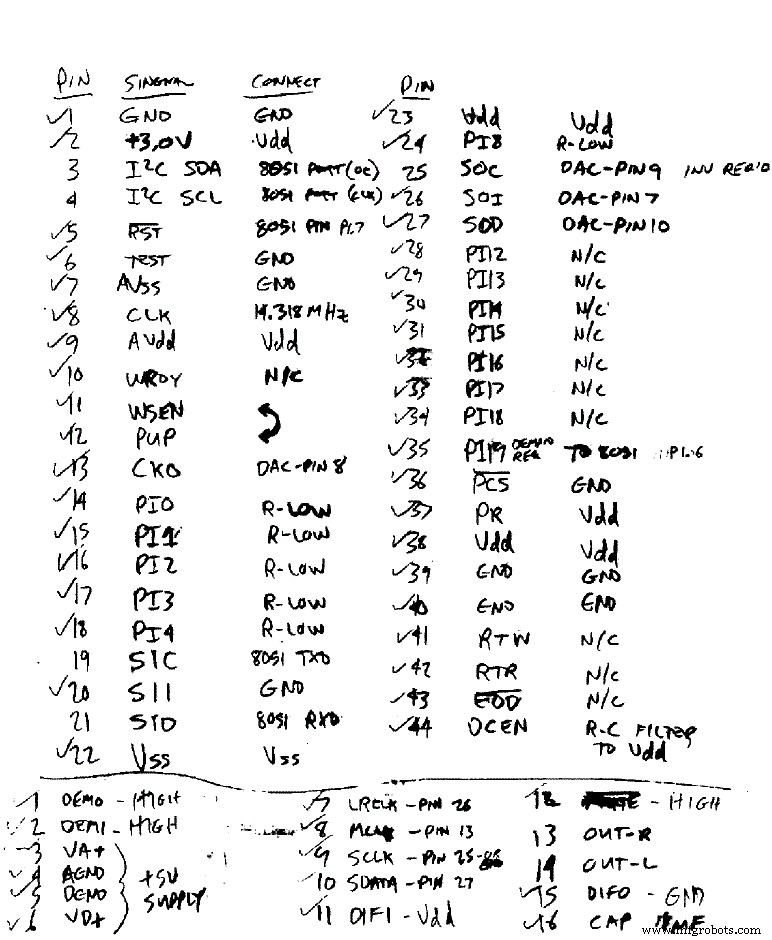 PIN SINGNAL CONNECT
✓1 GND GND
✓2 +3.0V Vdd
3 I2C SDA 8051 PORT (OC)
4 I2C SCL 8051 PORT (CLK)
✓5 RST 8051 PIN P1.7
✓6 TEST GND
✓7 AVSS GND
✓8 CLK 14.318 MHZ
✓9 AVdd Vdd
✓10 WRDY N/C
✓11 WSEN
✓12 PUP
✓13 CKO DAC-PIN 8
✓14 PI0 R-LOW
✓15 PI1 R-LOW
✓16 PI2 R-LOW
✓17 PI3 R-LOW
✓18 PI4 R-LOW
19 SIC 8051 TXD
✓20 SII GND
21 SID 8051 RXD
✓22 VSS VSS
PIN
✓23 Vdd Vdd
✓24 PI8 R-LOW
25 SOC DAC-PIN 9 INV REQ'D
✓26 SOI DAC-PIN 7
✓27 SOD DAC-PIN 10
✓28 PI12 N/C
✓29 PI13 N/C
✓30 PI14 N/C
✓31 PI15 N/C
✓32 PI16 N/C
✓33 PI17 N/C
✓34 PI18 N/C
✓35 PI19 DEMAND REQ TO 8051 P1.6
✓36 PCS GND
✓37 PR Vdd
✓38 Vdd Vdd
✓39 GND GND
✓40 GND GND
✓41 RTW N/C
✓42 RTR N/C
✓43 EOD N/C
✓44 DCEN R-C FILTER
TO Vdd
✓1 DEM0 - HIGH
✓2 DEM1 - HIGH
✓3 VA+
✓4 AGND
✓5 DGND
✓6 VD+
+5V
SUPPLY
✓7 LRCLK - PIN 26
✓8 MCLK - PIN 13
✓9 SCLK - PIN 25
✓10 SDATA - PIN 27
✓11 DIF1 - Vdd
✓12 - HIGH
13 OUT-R
14 OUT-L
✓15 DIF0 - GND
✓16 CAP
www.mfgrobots.com